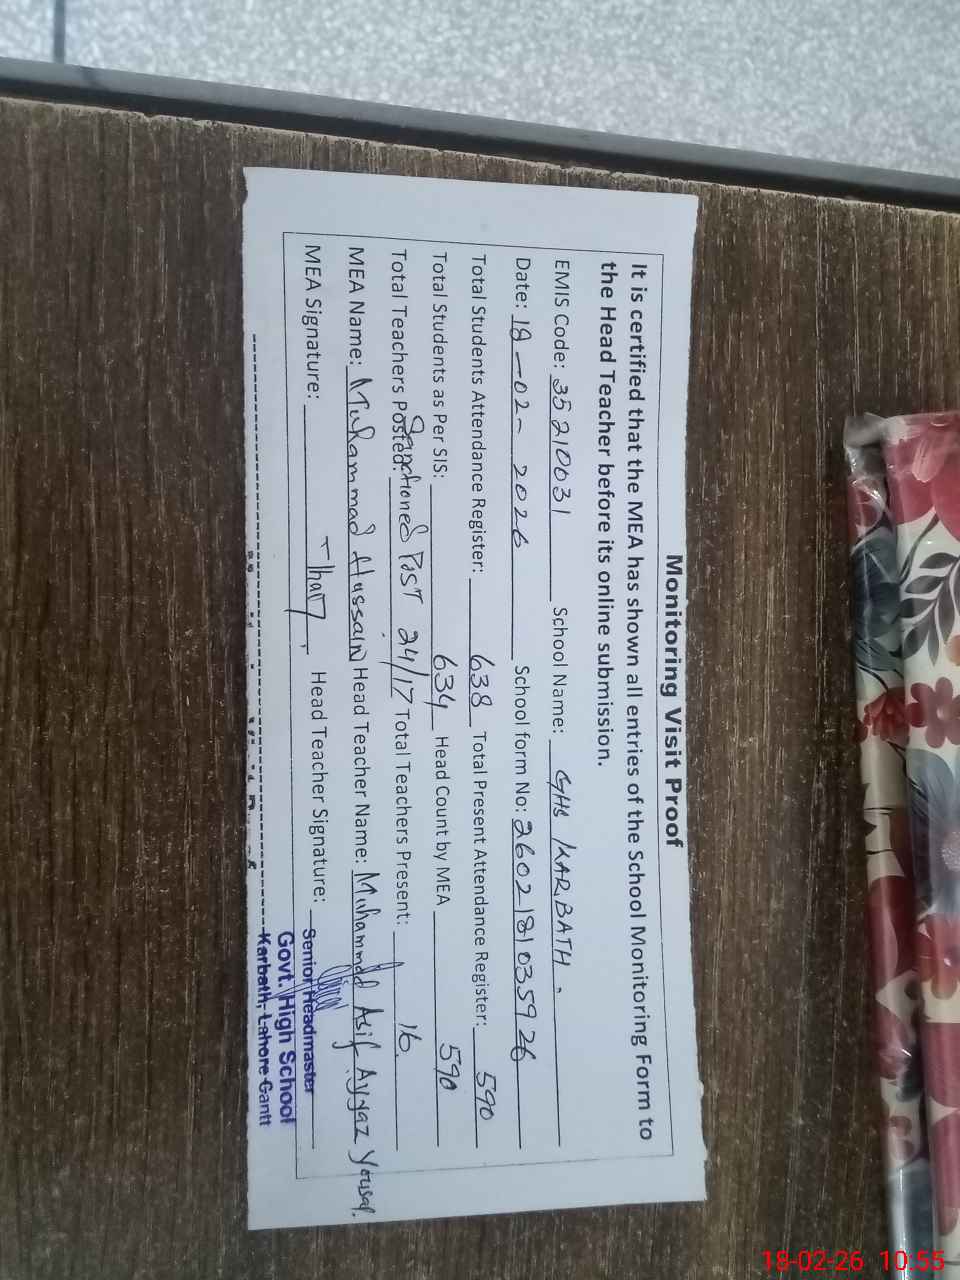 Monitoring Visit Proof
It is certified that the MEA has shown all entries of the School Monitoring Form to
the Head Teacher before its online submission.
EMIS Code: 35210031 School Name: GHS KARBATH.
Date: 18-02-2026 School form No: 26021810359 26
Total Students Attendance Register: 638 Total Present Attendance Register: 590
Total Students as Per SIS: 634 Head Count by MEA 590
Sanctioned Post
Total Teachers Posted: 24/17 Total Teachers Present: 16.
MEA Name: Muhammad Hussain Head Teacher Name: Muhammad Asif Ayyaz Yousaf.
MEA Signature: Head Teacher Signature:
Senior Headmaster
Govt. High School
Karbath, Lahore Cantt
18-02-26 10:55